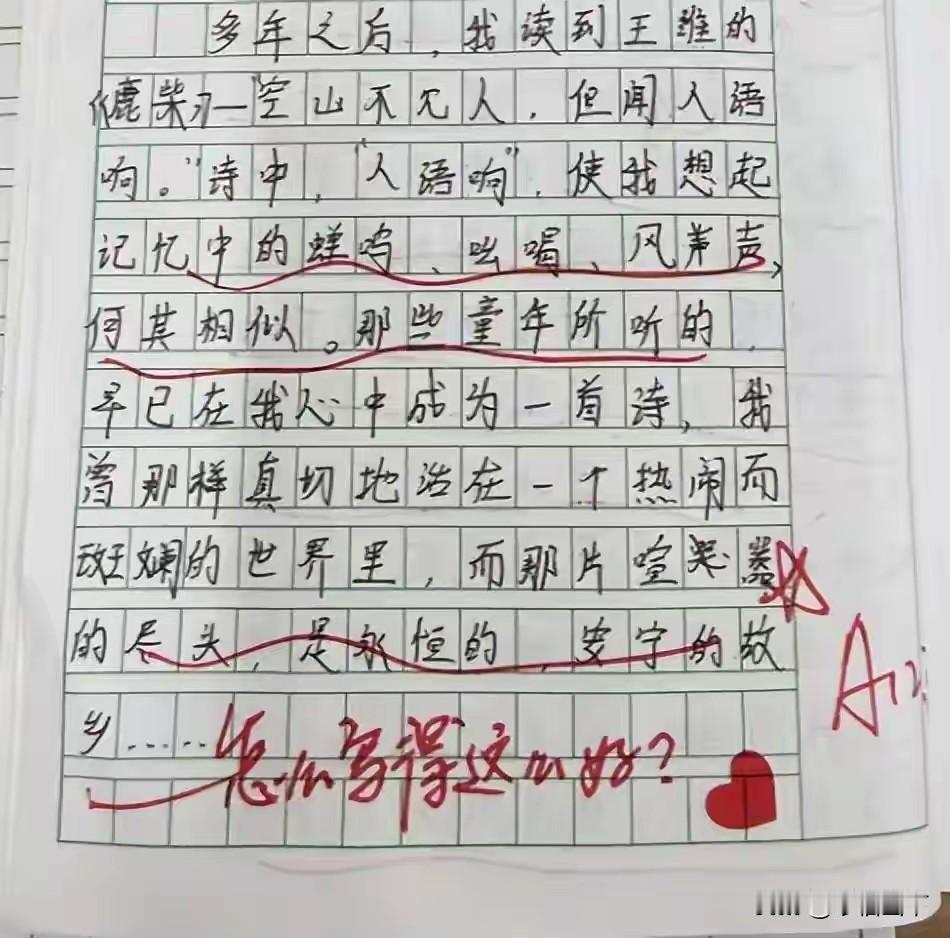 多年之后，我读到王维的
《鹿柴》—“空山不见人，但闻人语
响。”诗中，“人语响”，使我想起
记忆中的蝉鸣、吆喝、风声声，
何其相似。那些童年所听的，
早已在我心中成为一首诗，我
曾那样真切地活在一个热闹而
斑斓的世界里，而那片喧嚣
的尽头，是永恒的，安宁的故
乡……
怎么写得这么好？